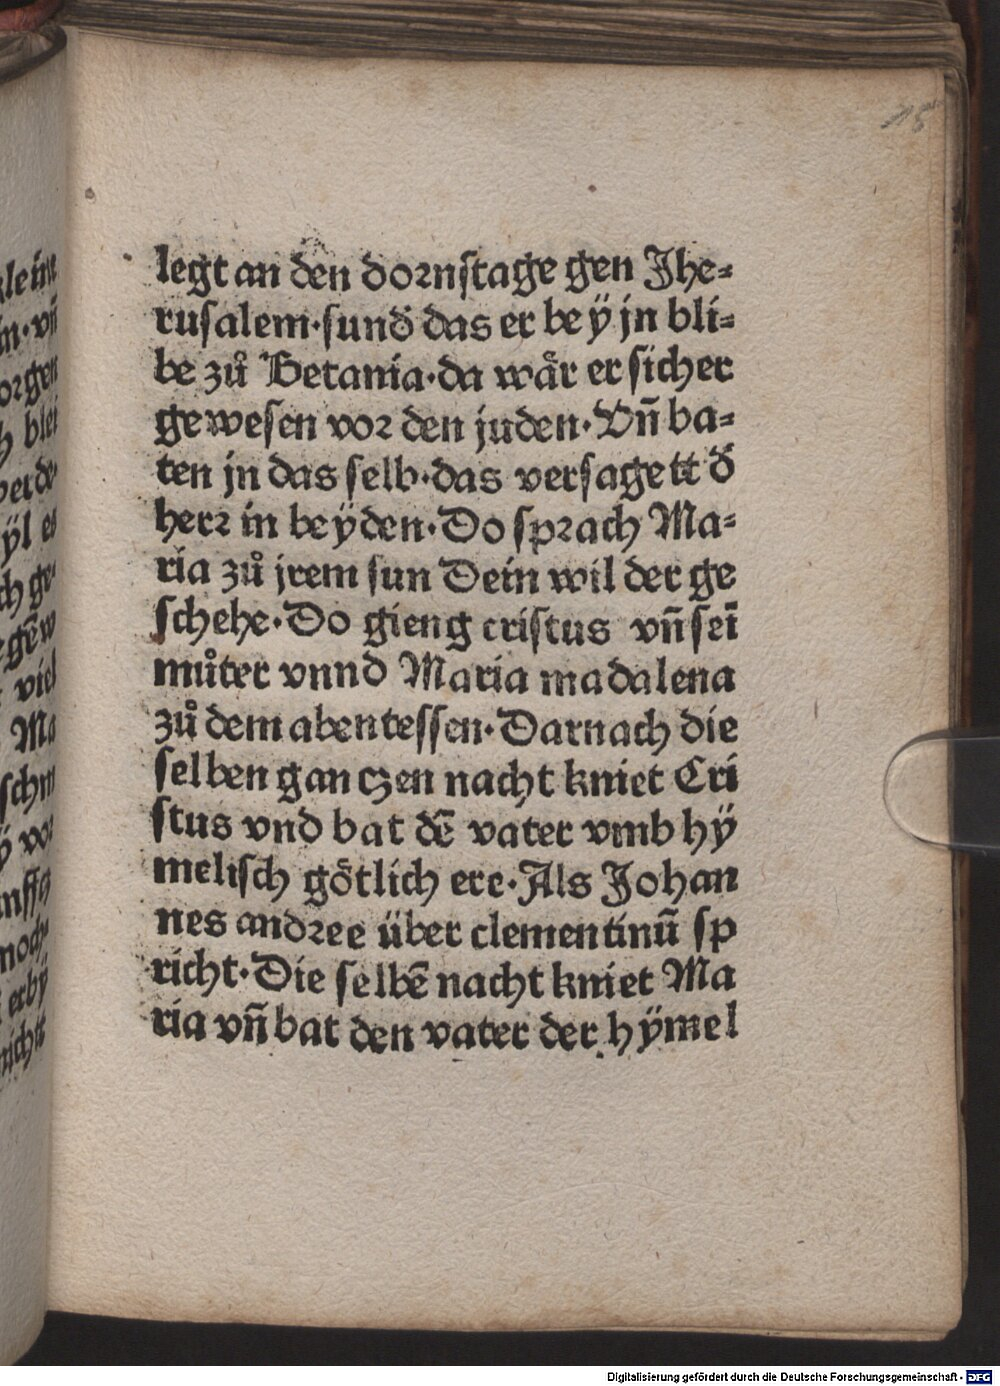 legt an den dornstage gen Jhe⸗
rusalem·sund̕ das er beÿ jn bli⸗
be zů Betania·da wår er sicher
gewesen vor den juden·Vn̄ ba⸗
ten jn das selb·das versagett d̕
herr in beÿden·Do sprach Ma⸗
ria zů jrem sun Dein wil der ge
schehe·Do gieng cristus vn̄ seī
můter vnnd Maria madalena
zů dem abentessen·Darnach die
selben ganczen nacht kniet Cri
stus vnd bat dē vater vmb hÿ
melisch götlich ere·Als Johan
nes andree über clementinū sp
richt·Die selbē nacht kniet Ma
ria vn̄ bat den vater der hÿmel
Digitalisierung gefördert durch die Deutsche Forschungsgemeinschaft - DFG